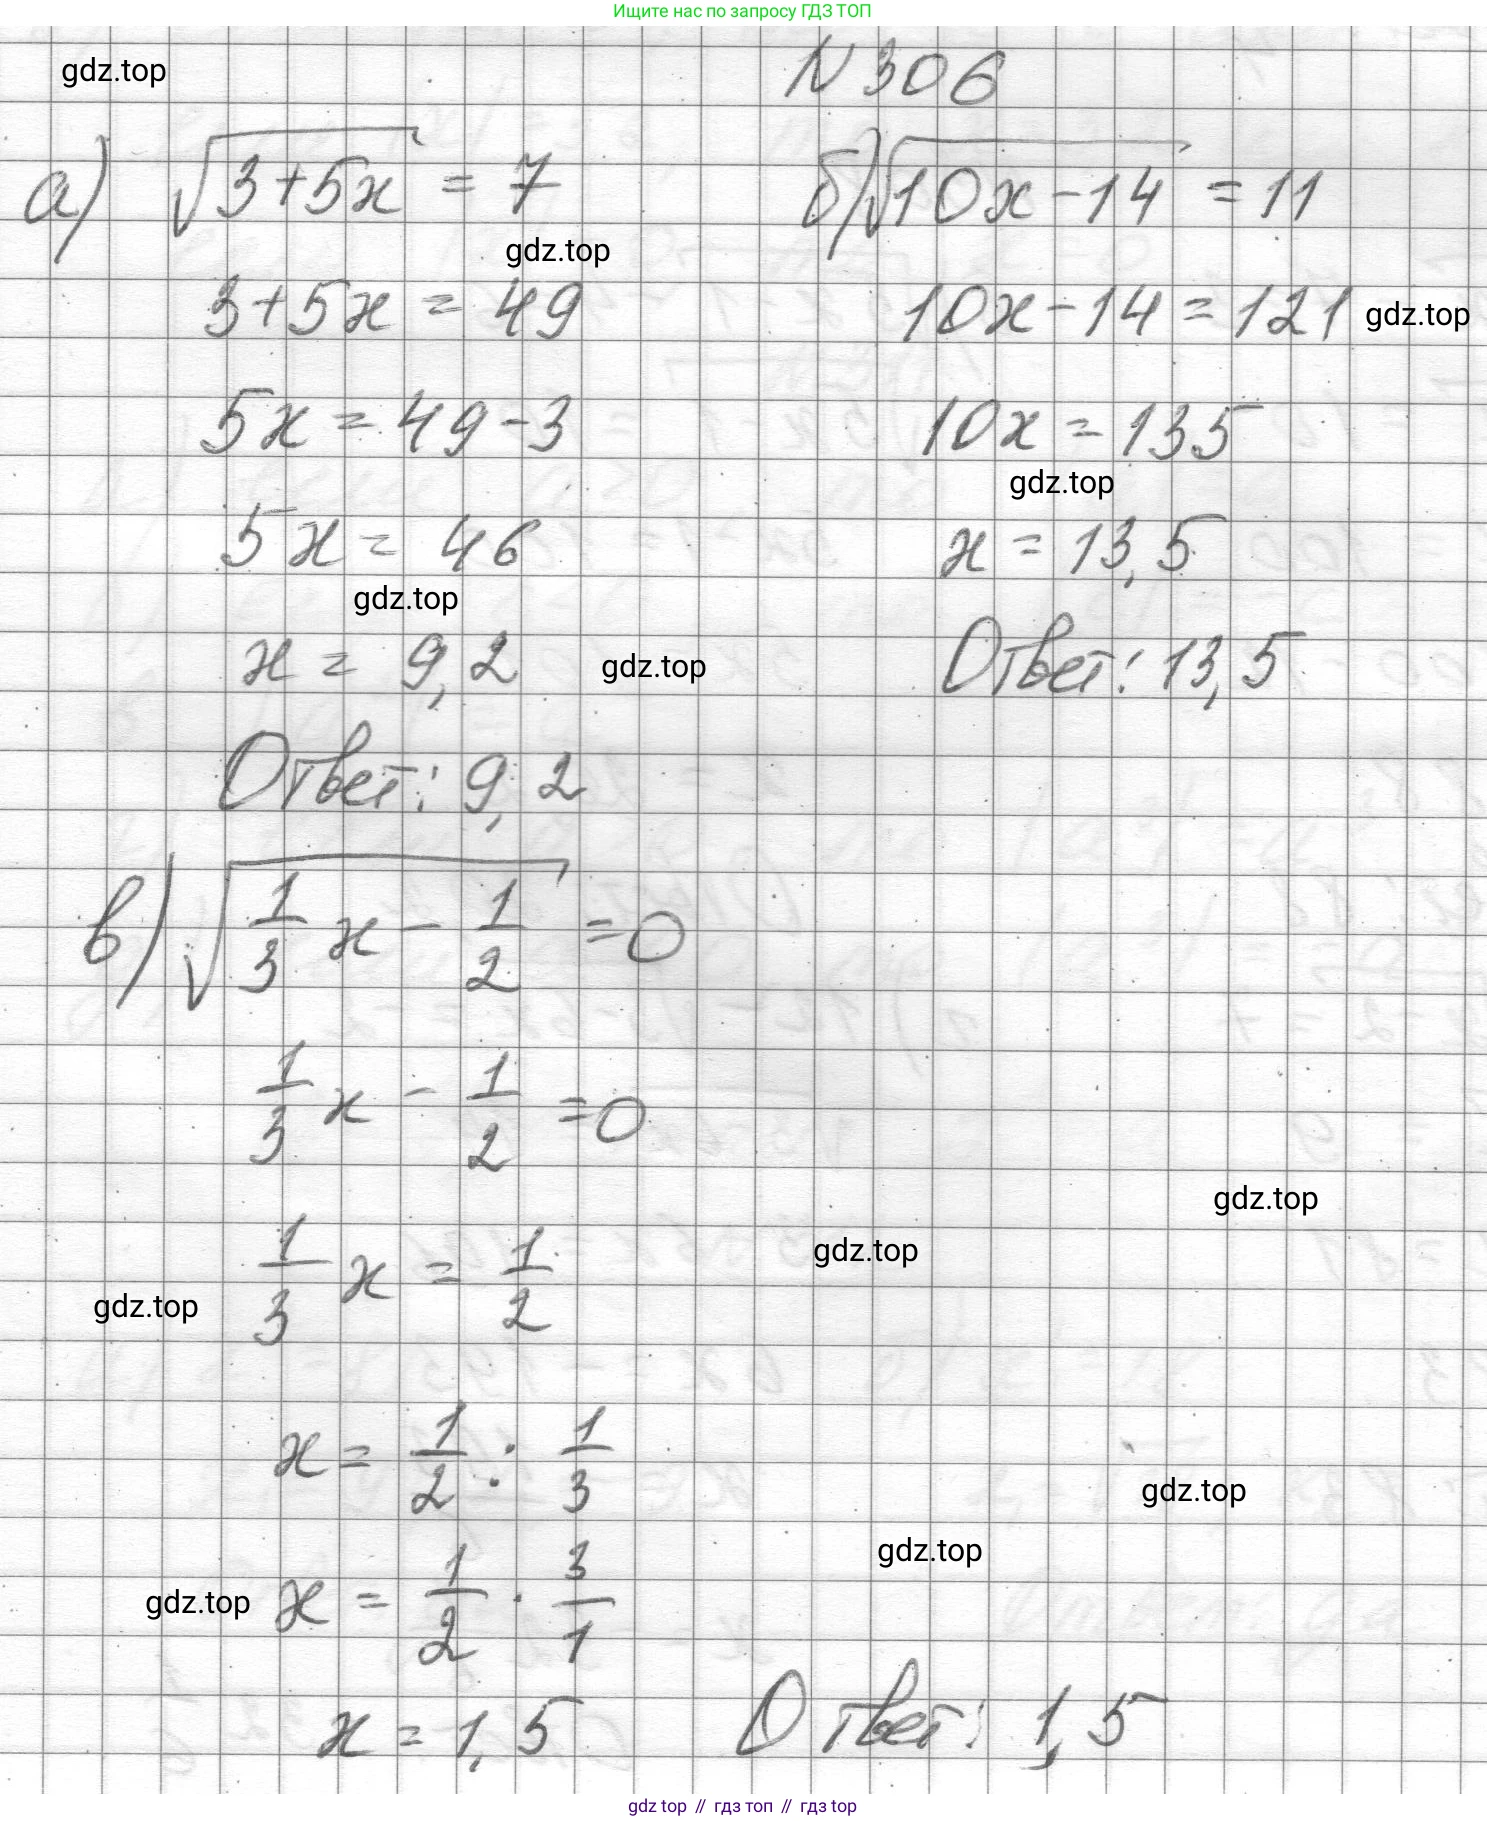 Ищите нас по запросу ГДЗ ТОП
gdz.top
N 306
а) √(3+5x) = 7
б) √(10x-14) = 11
gdz.top
3+5x = 49
10x-14=121
gdz.top
5x = 49-3
10x = 135
gdz.top
5x = 46
x = 13,5
gdz.top
x = 9,2
gdz.top
Ответ: 13,5
Ответ: 9,2
в) √(1/3 x - 1/2) = 0
1/3 x - 1/2 = 0
gdz.top
gdz.top
1/3 x = 1/2
gdz.top
x = 1/2 : 1/3
gdz.top
gdz.top
gdz.top
x = 1/2 · 3/1
x = 1,5
Ответ: 1,5
gdz top // гдз топ // гдз top